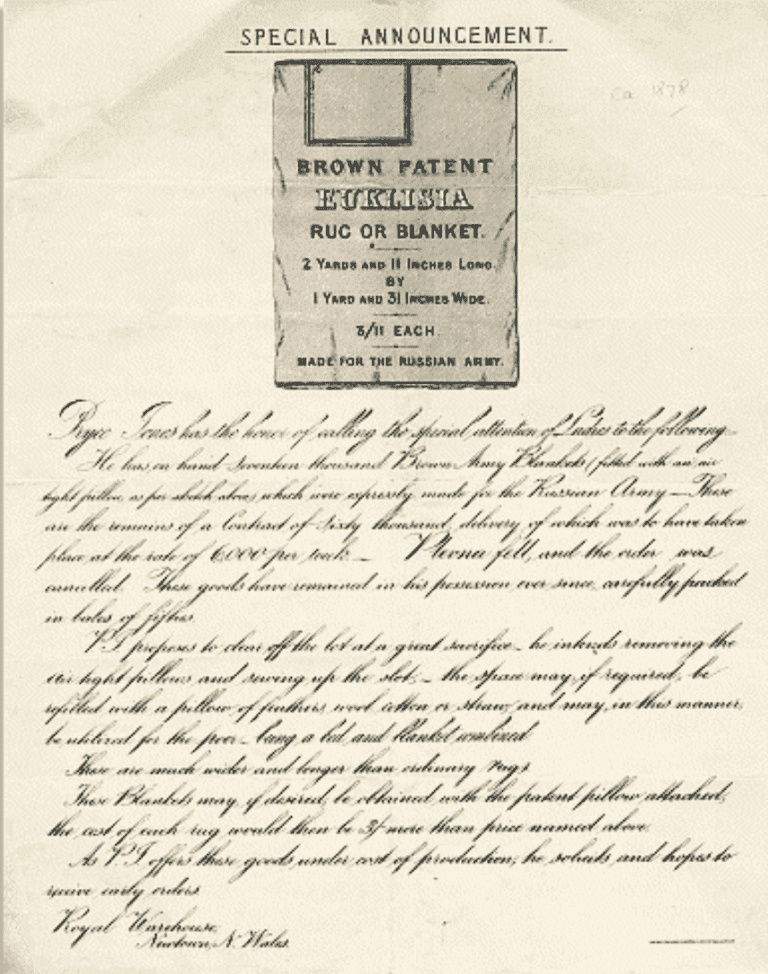 SPECIAL ANNOUNCEMENT.
ca 1878
BROWN PATENT
EUKLISIA
RUG OR BLANKET.
2 YARDS AND 11 INCHES LONG.
BY
1 YARD AND 31 INCHES WIDE.
3/11 EACH.
MADE FOR THE RUSSIAN ARMY.
Pryce Jones has the honor of calling the special attention of Ladies to the following—
He has on hand seventeen thousand Brown Army Blankets (fitted with an air
tight pillow as per sketch above) which were expressly made for the Russian Army — These
are the remains of a Contract of Sixty thousand, delivery of which was to have taken
place at the rate of 6,000 per week — Plevna fell, and the order was
cancelled. These goods have remained in his possession ever since, carefully packed
in bales of fifties.
P.J. proposes to clear off the lot at a great sacrifice — he intends removing the
air tight pillows and sewing up the slot, — the space may, if required, be
refilled with a pillow of feathers, wool, cotton or straw, and may, in this manner,
be utilized for the poor — being a bed and blanket combined
These are much wider and longer than ordinary rugs
These Blankets may, if desired, be obtained with the patent pillow attached,
the cost of each rug would then be 3/- more than price named above.
As P.J. offers these goods under cost of production, he solicits and hopes to
receive early orders
Royal Warehouse,
Newtown, N. Wales.